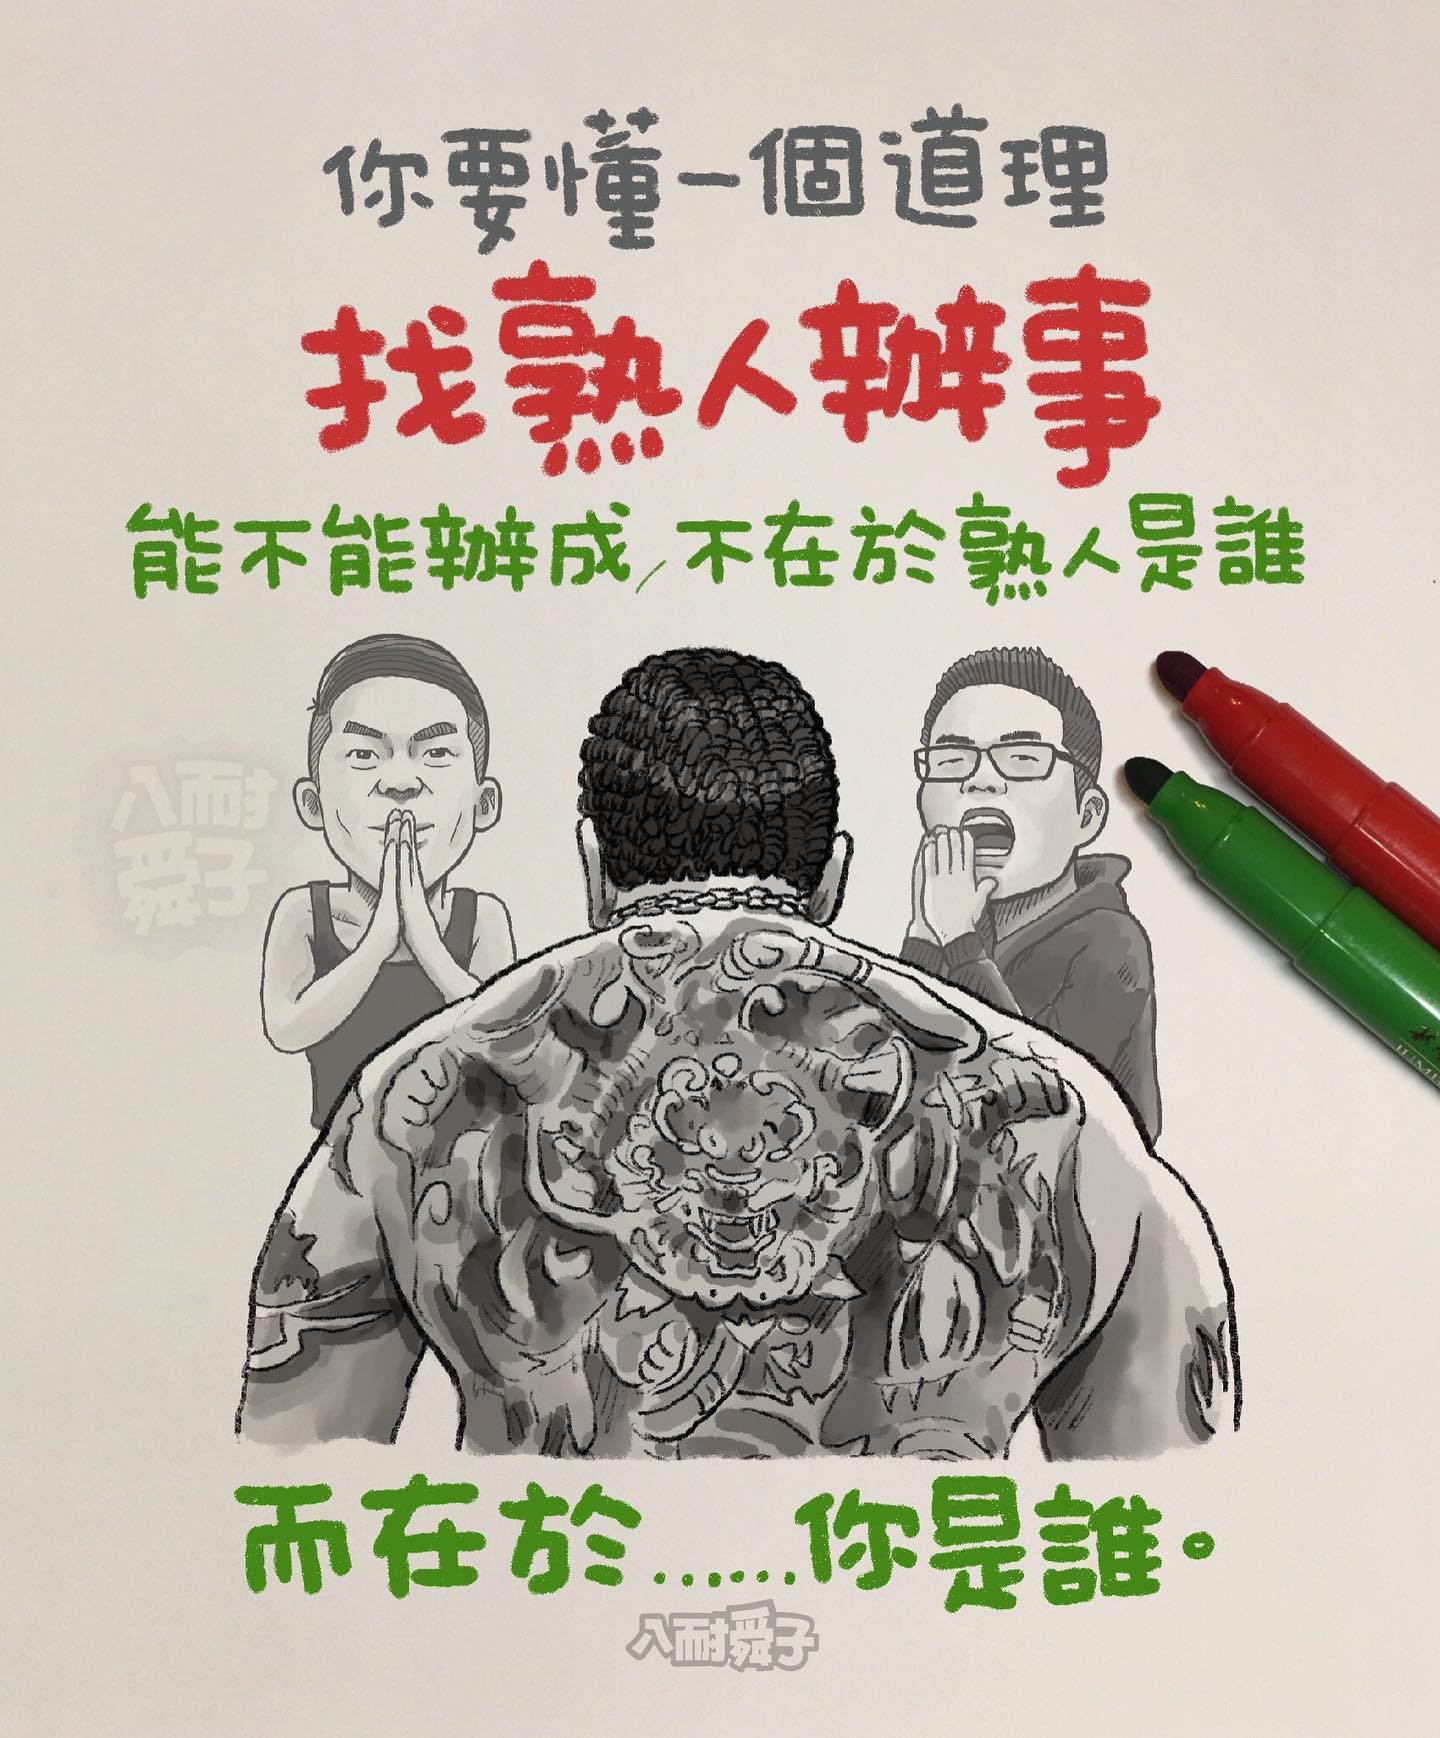 你要懂一個道理
找熟人辦事
能不能辦成，不在於熟人是誰
八耐
舜子
而在於……你是誰。
八耐舜子